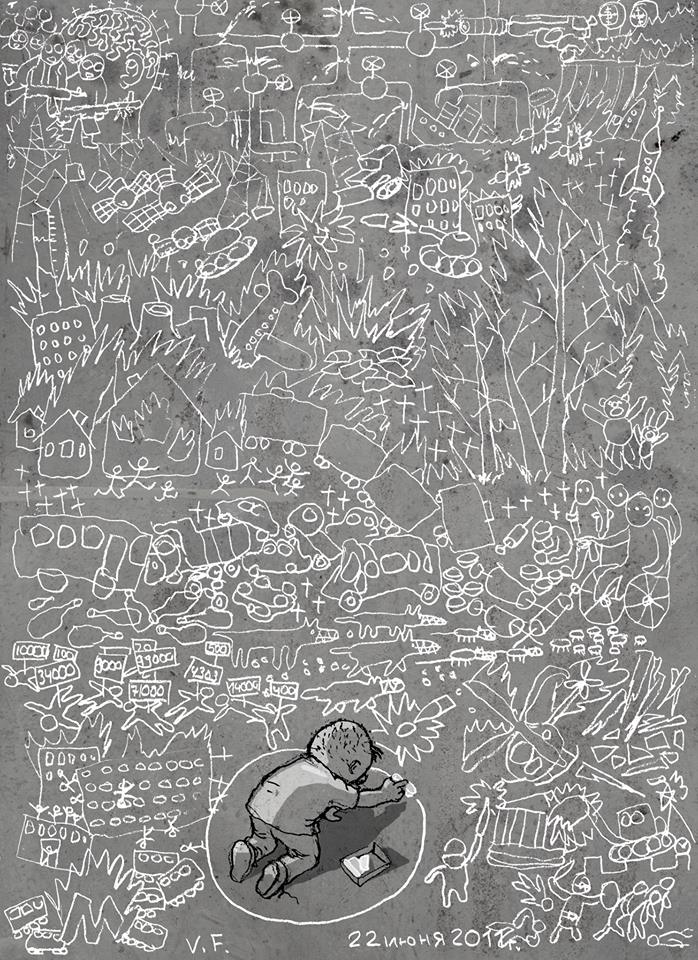 10000 100
34000
3000
20
39000
71000
4303
500
14000
400
V.F.
22 июня 2011г.